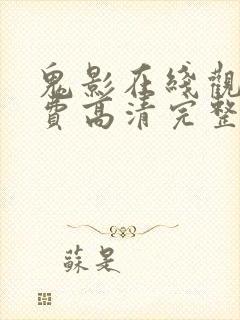 鬼影在綫觀
費高清完整
蘇是